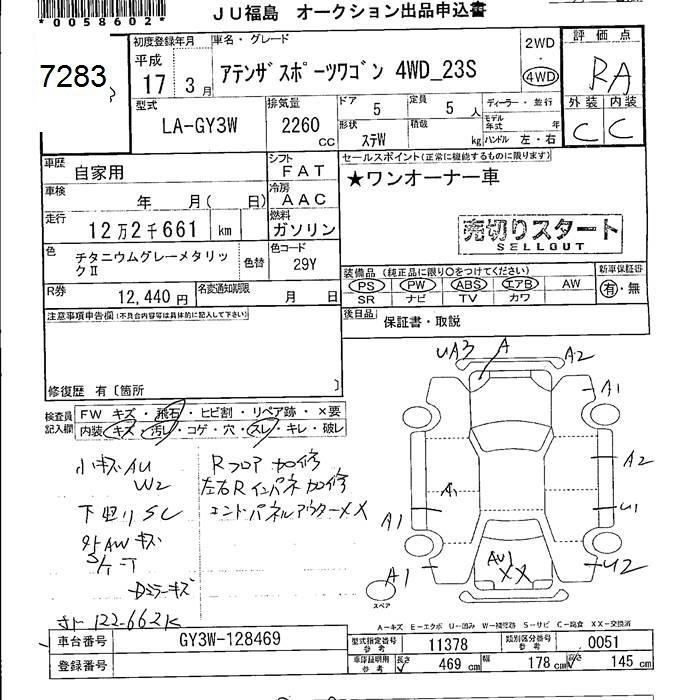 *0058602*
JU福島 オークション出品申込書
7283
初度登録年月
平成
17 3月
車名・グレード
アテンザスポーツワゴン 4WD_23S
2WD
4WD
評価点
RA
外装 内装
C C
型式
LA-GY3W
排気量
2260
cc
ドア 5
定員 5人
形状 ステW
積載 kg
ディーラー・並行
モデル年式 年
ハンドル 左・右
車歴
自家用
シフト
FAT
セールスポイント(正常に機能するものに限ります)
★ワンオーナー車
車検
年 月( 日)
冷房
AAC
走行
12万2千661 km
燃料
ガソリン
売切りスタート
SELLOUT
色
チタニウムグレーメタリックⅡ
色替
色コード
29Y
装備品(純正品に限り○をつけてください)
PS PW ABS エアB AW
SR ナビ TV カワ
新車保証書
有・無
R券
12,440円
名変通知期限
月 日
後日品
保証書・取説
注意事項申告欄(不具合内容等は具体的に記入して下さい)
修復歴 有〔箇所 〕
検査員記入欄
FW キズ・飛石・ヒビ割・リペア跡・×要
内装・キズ・汚レ・コゲ・穴・スレ・キレ・破レ
小キズAU
W2
下回りSC
外AWキズ
Dミラーキズ
122-662K
Rフロア加修
左右Rインパネ加修
エンドパネルアウターXX
UA3 A A2
A1
A2
A1
A1 U1
AU1
XX
A1
U2
スペア
A-キズ E-エクボ U-凹み W-補修跡 S-サビ C-腐食 XX-交換済
車台番号
GY3W-128469
登録番号
型式指定番号
参考
11378
類別区分番号
参考
0051
車印証明用
参考
長さ 469 cm
幅 178 cm
高さ 145 cm